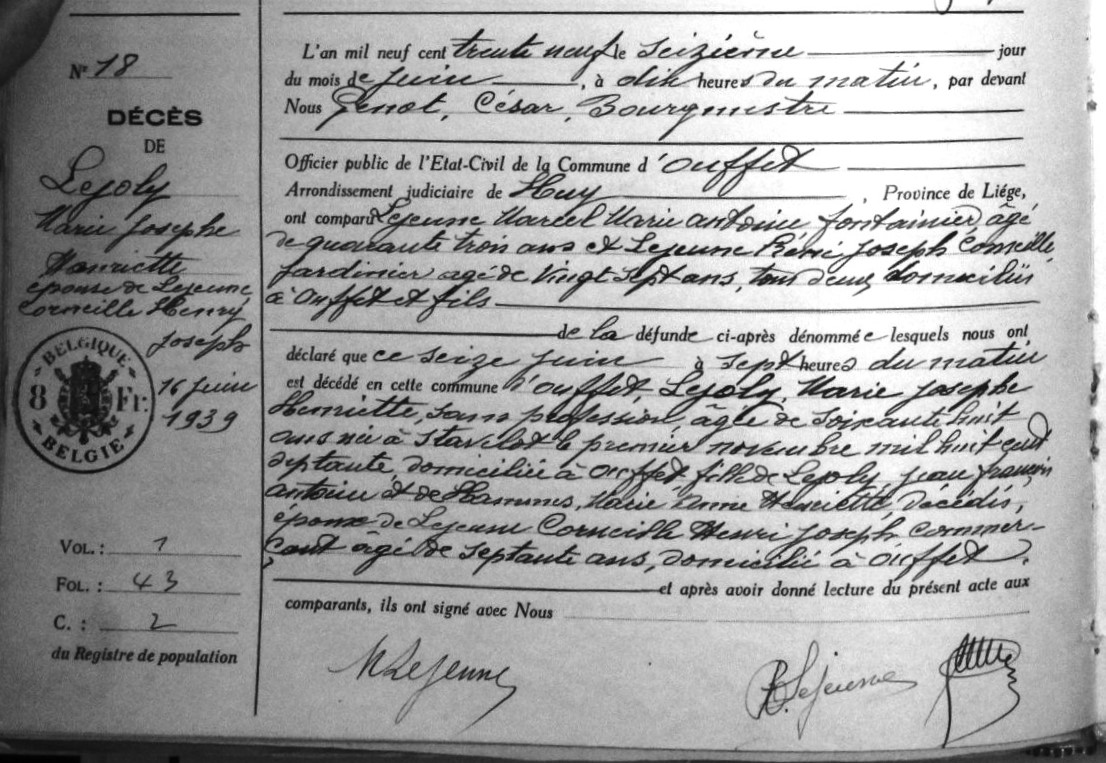 Nº 18
DÉCÈS
DE
Lejoly
Marie Josephe
Henriette
épouse de Lejeune
Corneille Henry
Joseph
BELGIQUE
8 Fr.
BELGIE
16 juin
1939
VOL. : 1
FOL. : 43
C. : 2
du Registre de population
L'an mil neuf cent trente neuf le seizième jour
du mois de juin, à dix heures du matin, par devant
Nous Genot, César, Bourgmestre
Officier public de l'Etat-Civil de la Commune d'Ouffet
Arrondissement judiciaire de Huy, Province de Liége,
ont comparu Lejeune Marcel Marie Antoine fontainier, âgé
de quarante trois ans et Lejeune Rémi Joseph Corneille,
jardinier agé de vingt sept ans, tous deux domiciliés
à Ouffet et fils
de la défunde ci-après dénommée lesquels nous ont
déclaré que ce seize juin à sept heures du matin
est décédé en cette commune d'Ouffet, Lejoly, Marie Josephe
Henriette, sans profession, âgée de soixante huit
ans née à Stavelot le premier novembre mil huit cent
septante, domiciliée à Ouffet fille de Lejoly, Jean françois
Antoine et de Hammes, Marie Anne Henriette, décédés,
épouse de Lejeune Corneille Henri Joseph commer-
çant âgé de septante ans, domicilié à Ouffet.
et après avoir donné lecture du présent acte aux
comparants, ils ont signé avec Nous
M Lejeune
R. Lejeune